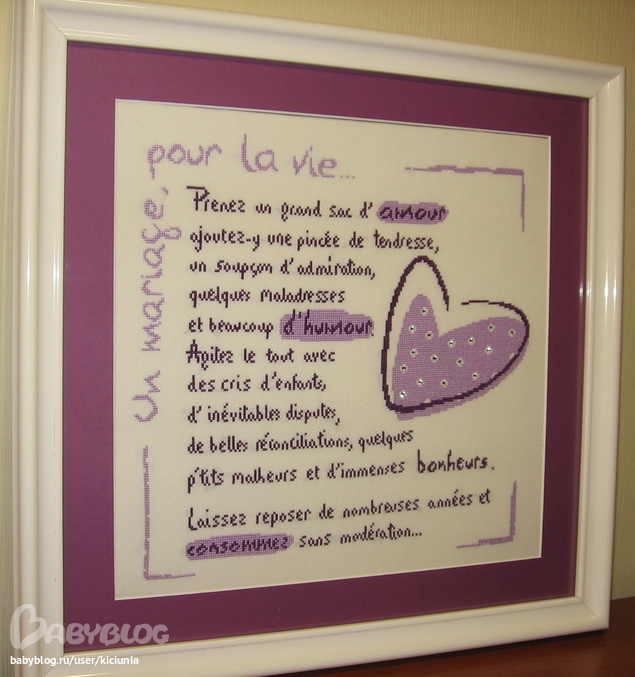 Un mariage,
pour la vie...
Prenez un grand sac d'amour
ajoutez-y une pincée de tendresse,
un soupçon d'admiration,
quelques maladresses
et beaucoup d'humour.
Agitez le tout avec
des cris d'enfants,
d'inévitables disputes,
de belles réconciliations, quelques
p'tits malheurs et d'immenses bonheurs.
Laissez reposer de nombreuses années et
consommez sans modération...
BABYBLOG
babyblog.ru/user/kiciunia